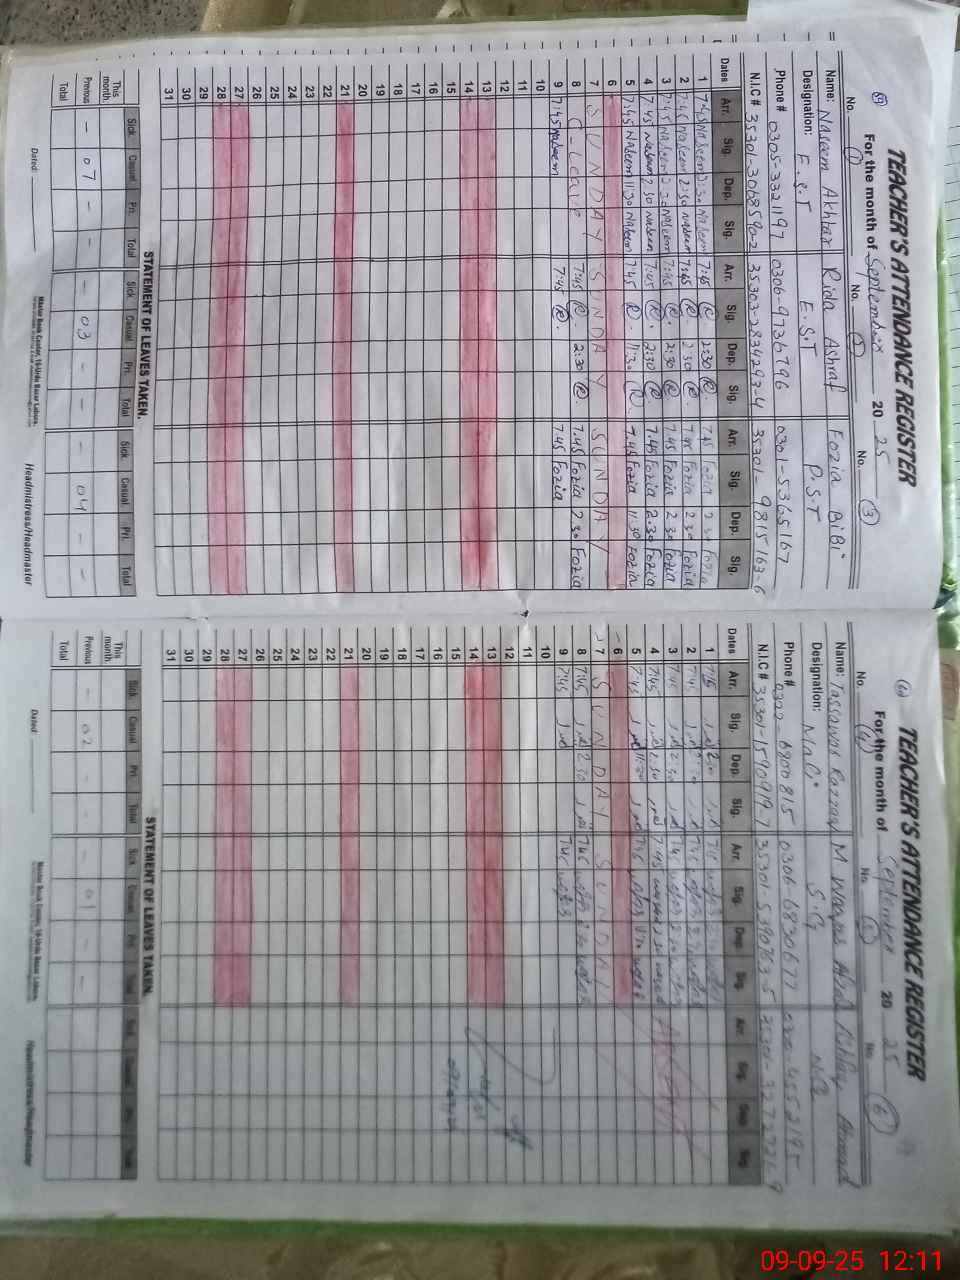 59
TEACHER'S ATTENDANCE REGISTER
For the month of September 20 25
No. 1 No. 2 No. 3
Name: Naseem Akhtar Rida Ashraf Fozia BiBi
Designation: E.S.T E.S.T P.S.T
Phone # 0305-3321197 0306-9736796 0301-5365167
N.I.C # 35303-2834293-4 35301-9815163-6
Dates Arr. Sig. Dep. Sig. Arr. Sig. Dep. Sig. Arr. Sig. Dep. Sig.
1 7:45 Naseem 2:30 Naseem 7:45 R 2:30 R 7.45 Fozia 2.30 Fozia
2 7:45 Naseem 2:30 Naseem 7:45 R 2:30 R 7.45 Fozia 2.30 Fozia
3 7:45 Naseem 2:30 Naseem 7:45 R 2:30 R 7.45 Fozia 2.30 Fozia
4 7:45 Naseem 2:30 Naseem 7:45 R 2:30 R 7.45 Fozia 2.30 Fozia
5 7:45 Naseem 11:30 Naseem 7:45 R 11:30 R 7.45 Fozia 11:30 Fozia
6
7 SUNDAY SUNDAY SUNDAY
8 C-Leave 7:45 R 2:30 R 7.45 Fozia 2.30 Fozia
9 7:45 Naseem 7:45 R 7.45 Fozia
10
11
12
13
14
15
16
17
18
19
20
21
22
23
24
25
26
27
28
29
30
31
STATEMENT OF LEAVES TAKEN.
Sick Casual Pri. Total Sick Casual Pri. Total Sick Casual Pri. Total
This month.
Previous - 07 - - - 03 - - - 04 - -
Total
Dated: Master Book Center, 10-Urdu Bazar Lahore. Headmistress/Headmaster
60
TEACHER'S ATTENDANCE REGISTER
For the month of September 20 25
No. 4 No. 5 No. 6
Name: Tassawar Razzaq M Waqas Ahmad
Designation: N.Q. S.G
Phone # 0322-6900815 0306-6830677
N.I.C # 35301-1590919-7 35301-5390763-5
Dates Arr. Sig. Dep. Sig. Arr. Sig. Dep. Sig. Arr. Sig. Dep. Sig.
1 7:45 2:30 7:45 waqas 2:30 waqas
2 7:45 2:30 7:45 waqas 2:30 waqas
3 7:45 2:30 7:45 waqas 2:30 waqas
4 7:45 2:30 7:45 waqas 2:30 waqas
5 7:45 11:30 7:45 waqas 11:30 waqas
6
7 SUNDAY SUNDAY
8 7:45 2:30 7:45 waqas 2:30 waqas
9 7:45 7:45 waqas
10
11
12
13
14
15
16
17
18
19
20
21
22
23
24
25
26
27
28
29
30
31
STATEMENT OF LEAVES TAKEN.
Sick Casual Pri. Total Sick Casual Pri. Total Sick Casual Pri. Total
This month.
Previous - 02 - - - 01 - -
Total
Dated: Master Book Center, 10-Urdu Bazar Lahore. Headmistress/Headmaster
09-09-25 12:11